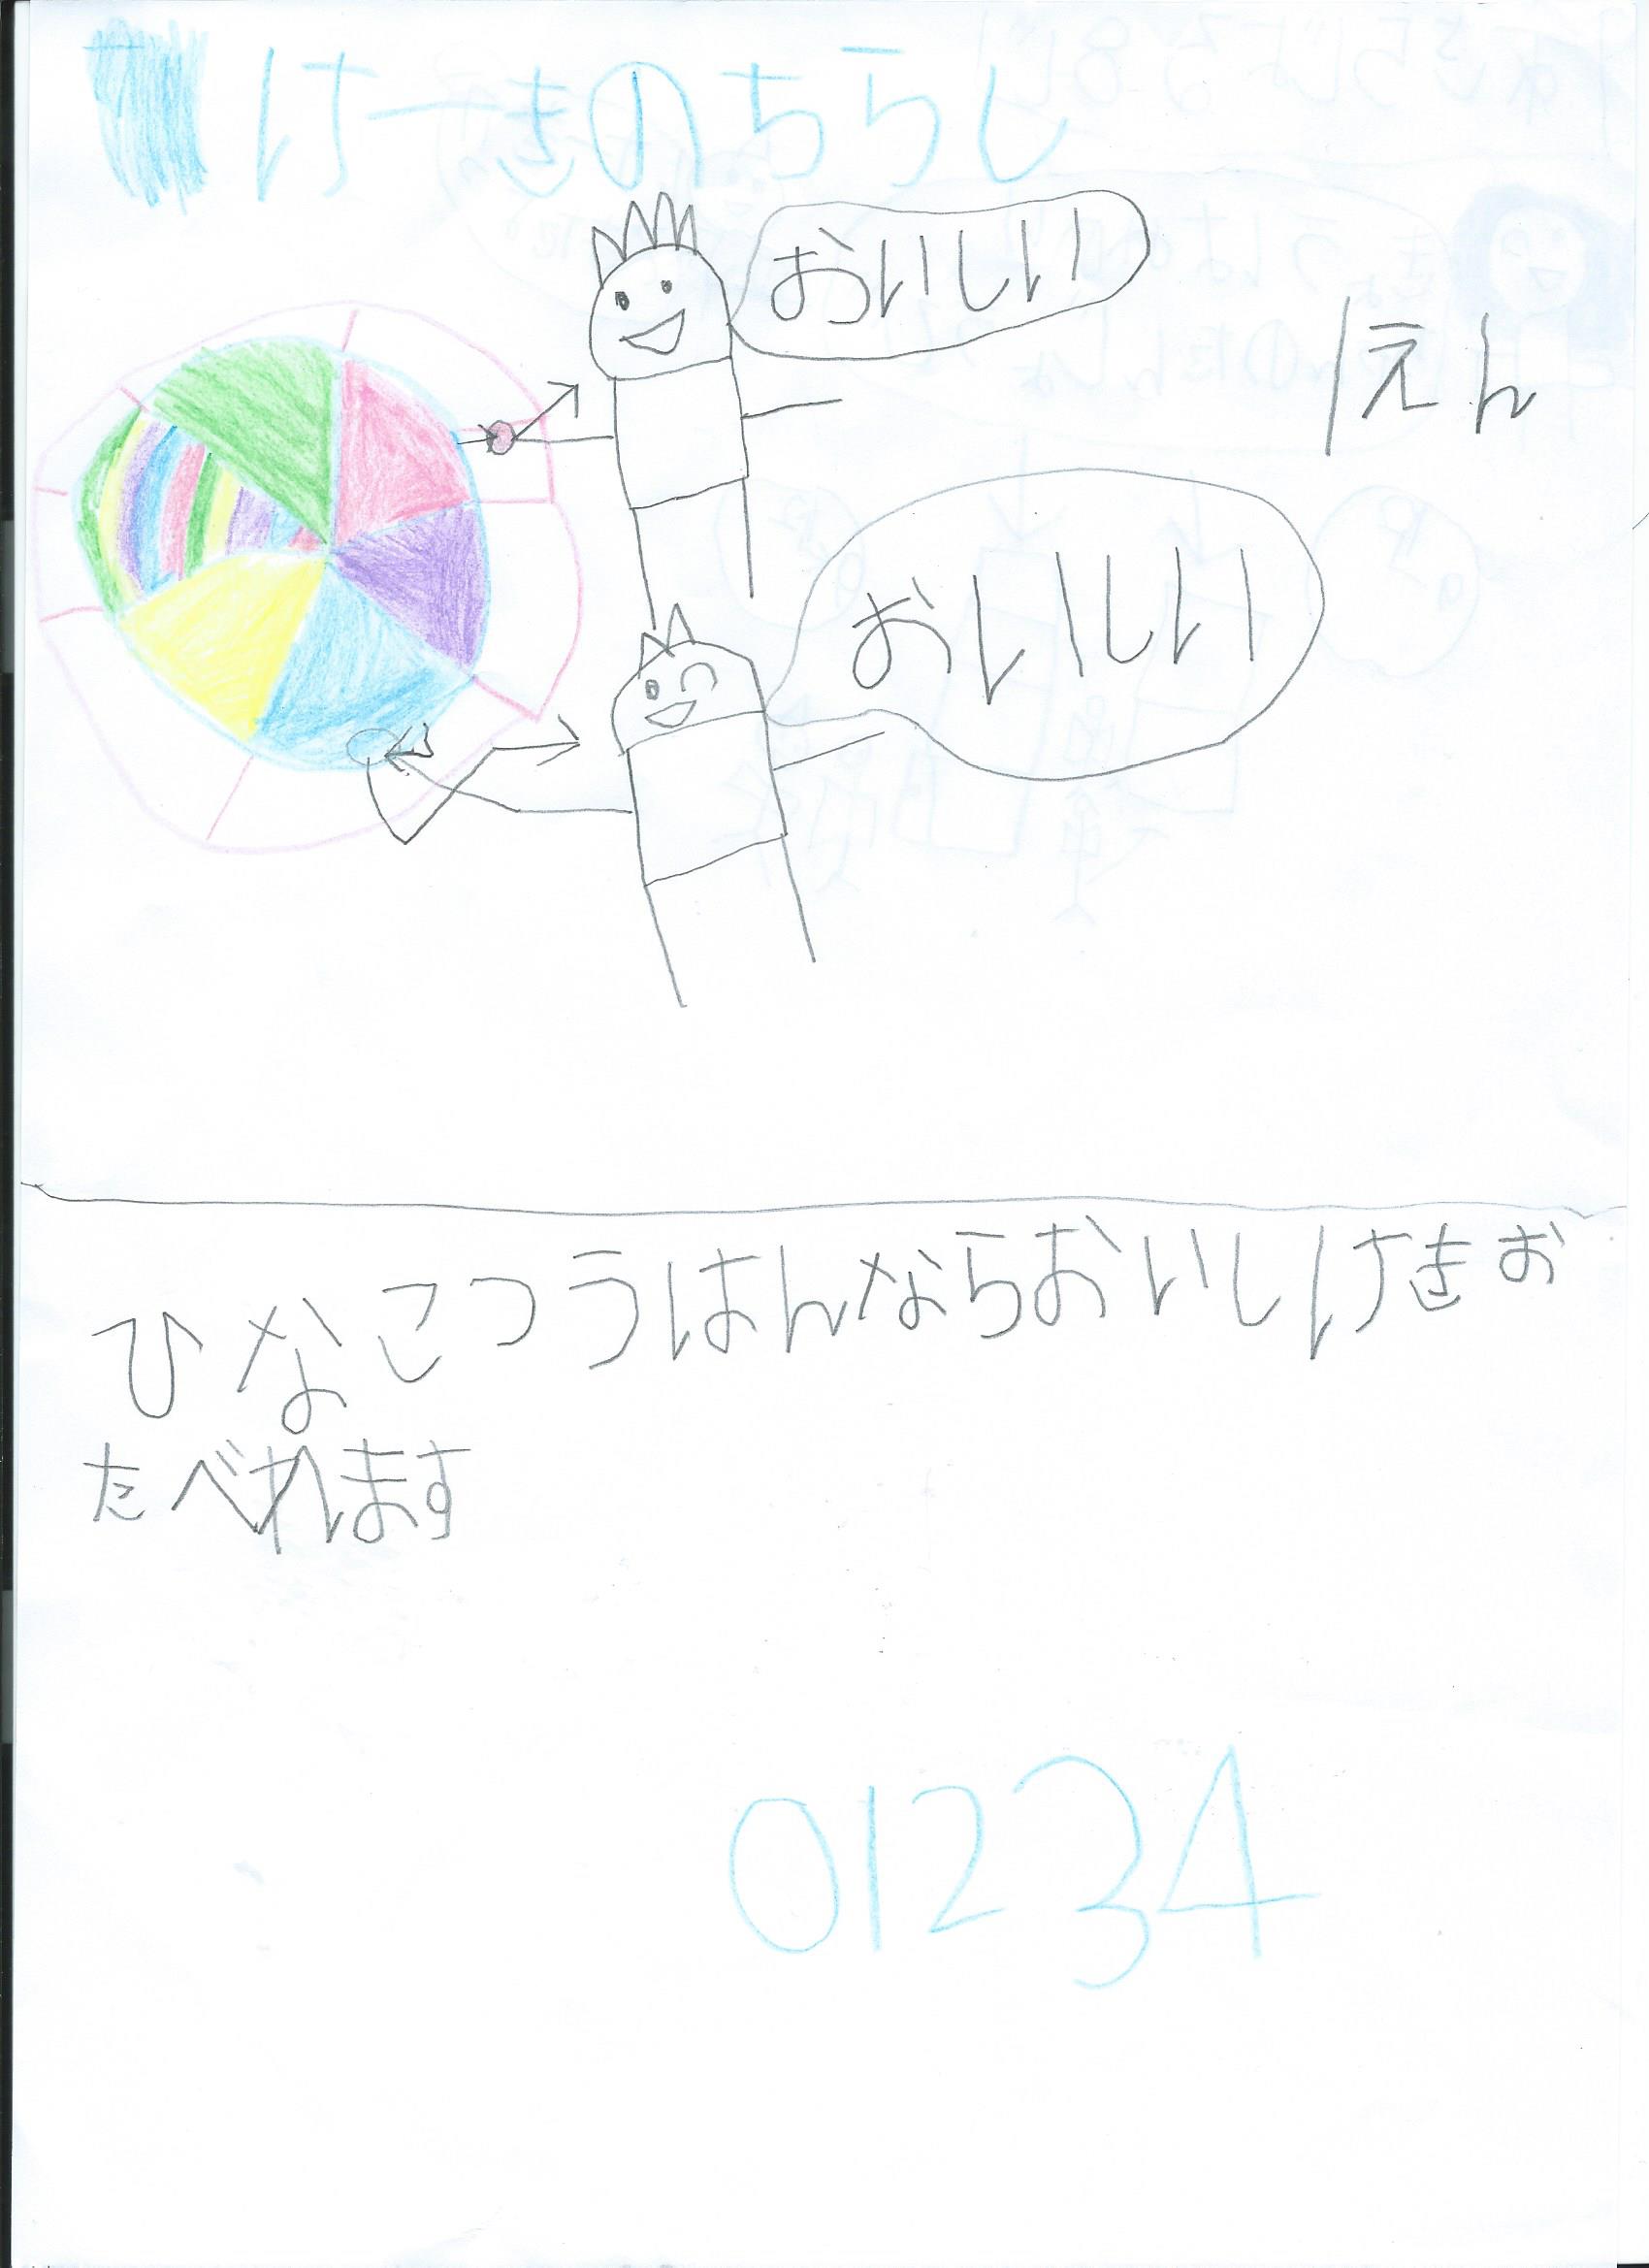 けーきのちらし
おいしい
1えん
おいしい
ひなこつうはんならおいしけきお
たべれます
01234